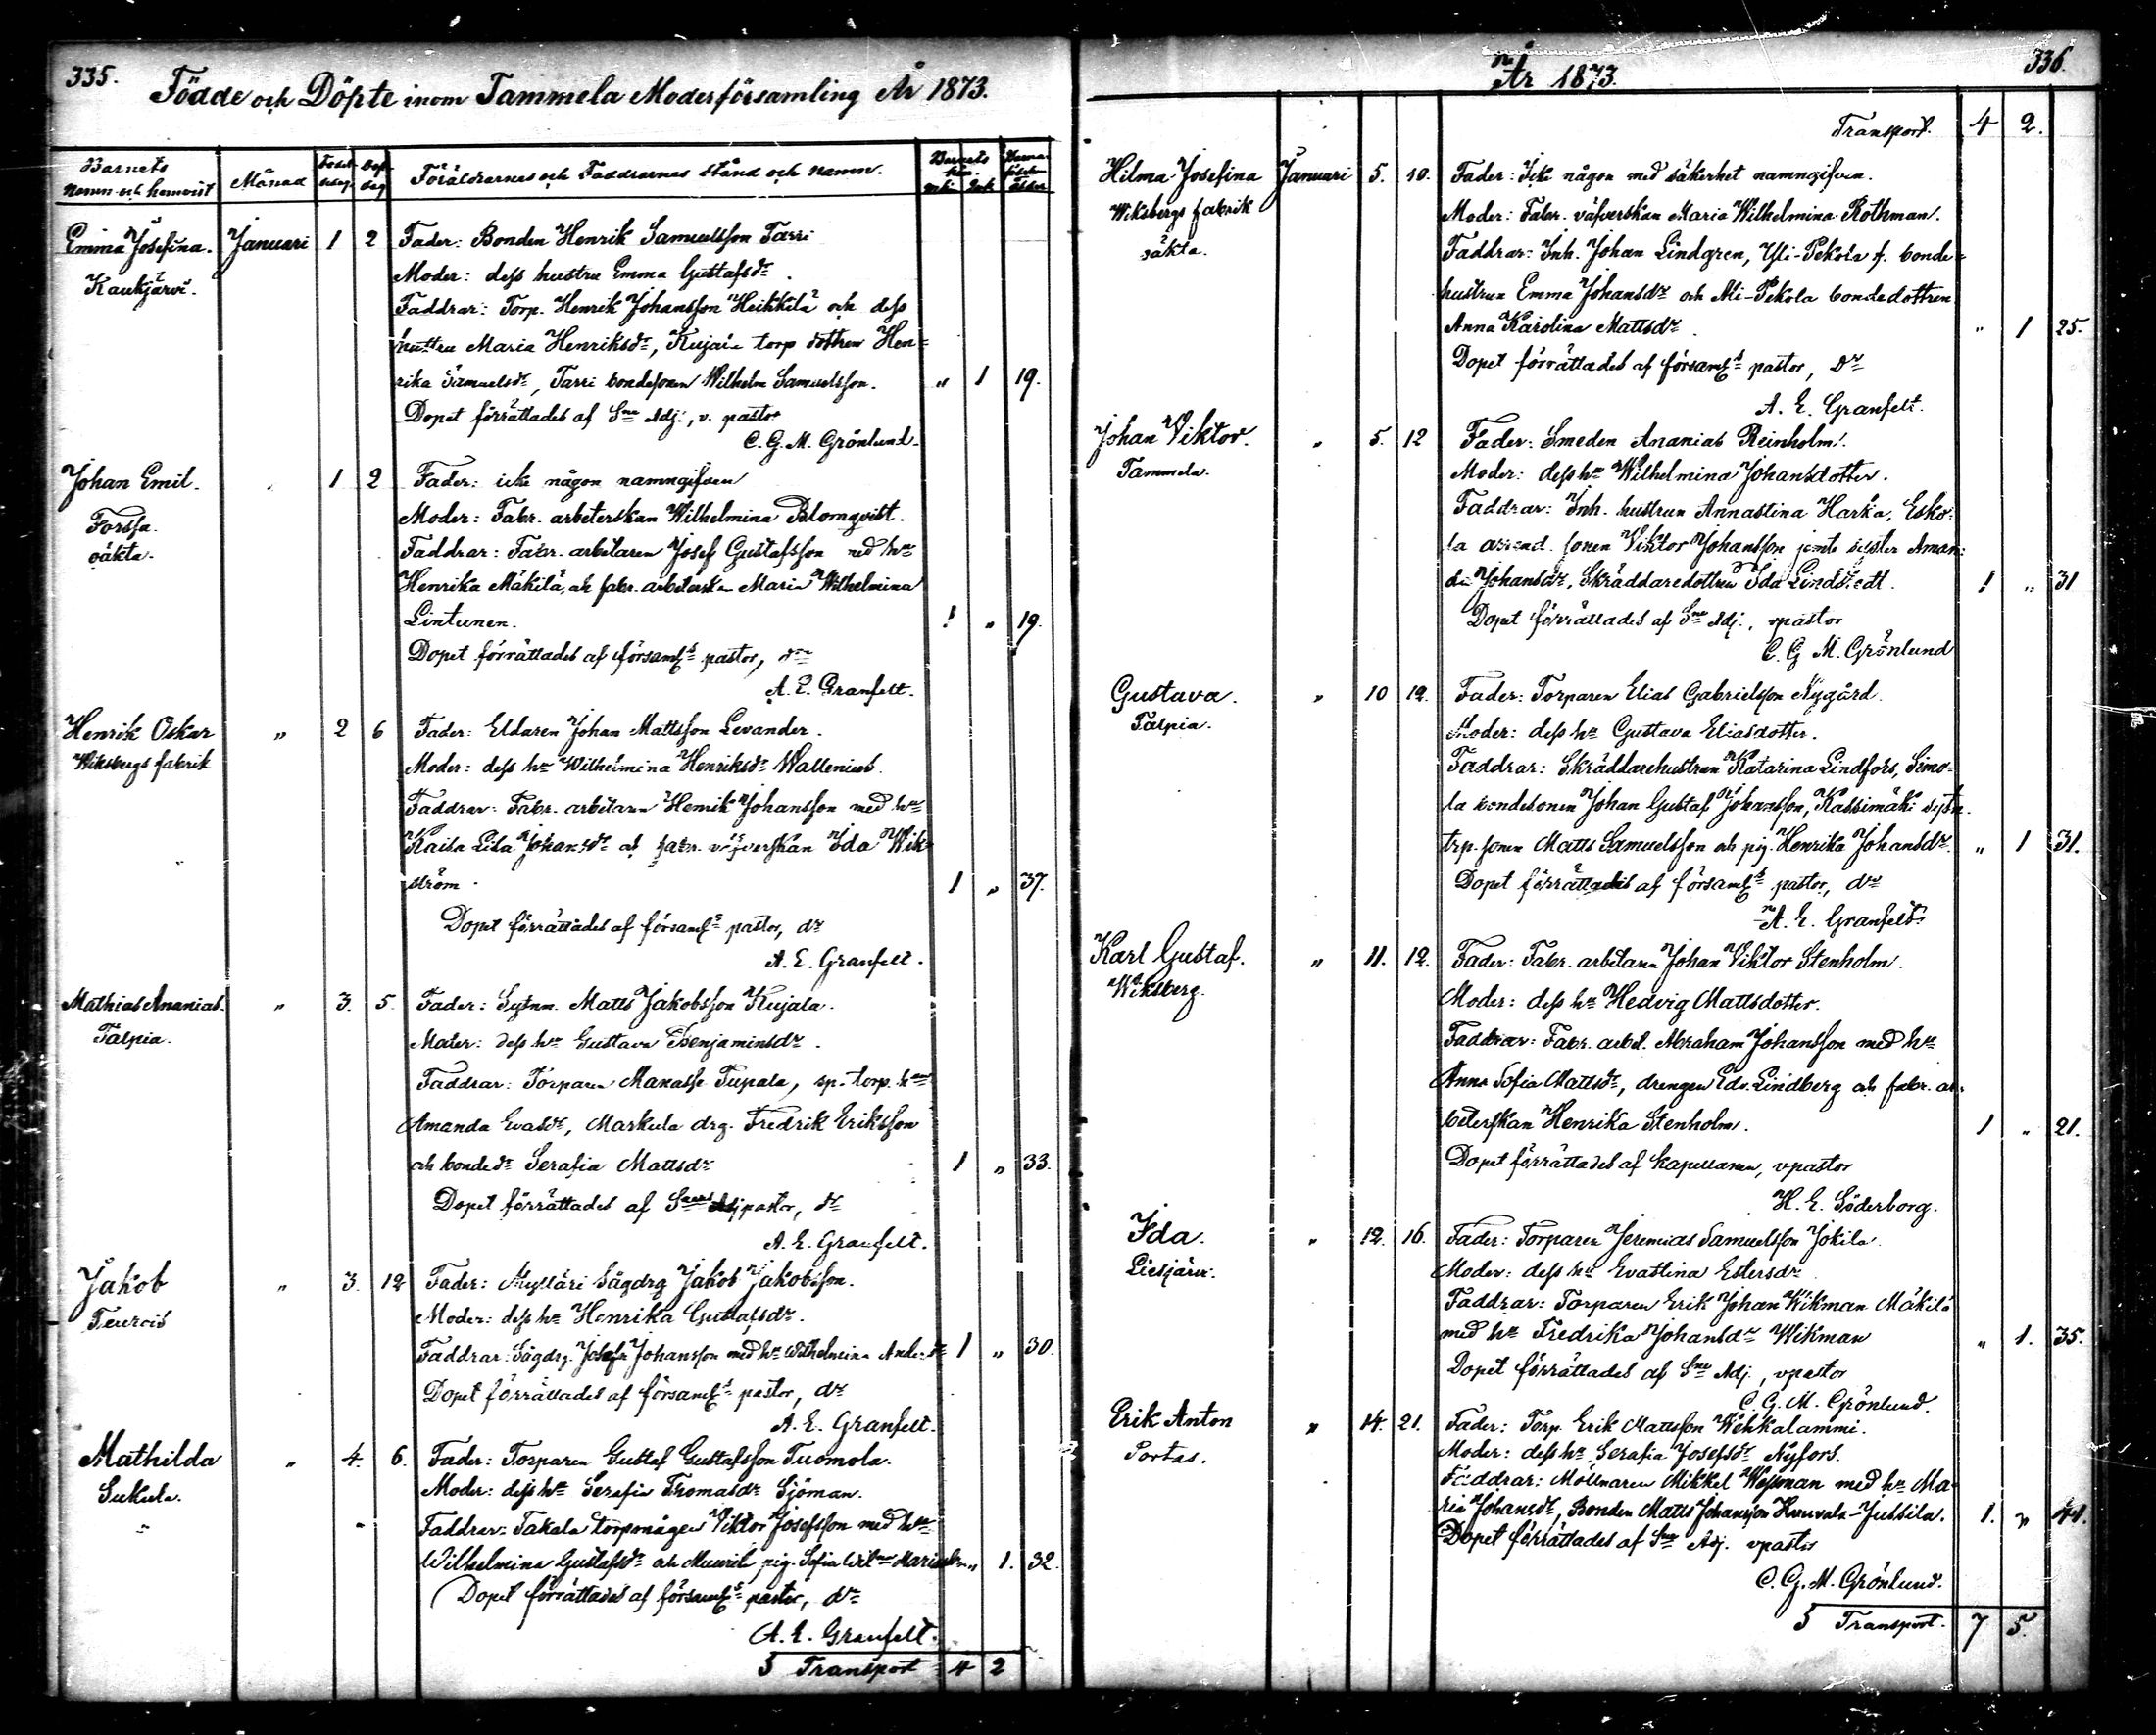 335.
Födde och Döpte inom Tammela Moderförsamling År 1873.
Barnets namn och hemvist
Månad
Föräldrarnes och Faddrarnes stånd och namn.
Emma Josefina. Januari 1 2 Fader: Bonden Henrik Samuelsson Tarri
Kaukjärvi. Moder: dess hustru Emma Gustafsdr.
Faddrar: Torp. Henrik Johansson Heikkilä och dess
hustru Maria Henriksdr, Kujala torp dottren Hen=
rika Samuelsdr, Tarri bondesonen Wilhelm Samuelsson. " 1 19.
Dopet förrättades af Sne Adj., v. pastor
C. G. M. Grönlund.
Johan Emil. 1 2 Fader: icke någon namngifven
Forssa. Moder: Fabr. arbeterskan Wilhelmina Blomqvist.
oäkta. Faddrar: Fabr. arbetaren Josef Gustafsson med hu
Henrika Mäkilä, och fabr. arbeterskan Maria Wilhelmina
Lintunen. 1 " 19.
Dopet förrättades af församls pastor, dr
A. E. Granfelt.
Henrik Oskar " 2 6 Fader: Eldaren Johan Mattsson Levander.
Wiksbergs fabrik Moder: dess hu Wilhelmina Henriksdr Wallenius.
Faddrar: Fabr. arbetaren Henrik Johansson med hu
Kaisa Lisa Johansdr och fabr. väfverskan Ida Wik=
ström. 1 " 37.
Dopet förrättades af församls pastor, dr
A. E. Granfelt.
Mathias Ananias. " 3. 5. Fader: Sytnm. Matts Jakobsson Kujala.
Talpia. Moder: dess hu Gustava Benjaminsdr.
Faddrar: Torparen Manasse Tupala, sp. torp. hu
Amanda Evasdr, Markula drg. Fredrik Eriksson
och bondedr Serafia Mattsdr 1 " 33.
Dopet förrättades af pastor, dr
A. E. Granfelt.
Jakob " 3. 12 Fader: Mylläri Sågdrg Jakob Jakobsson.
Teuro Moder: dess hu Henrika Gustafsdr.
Faddrar: Sågdrg. Josef Johansson med hu Wilhelmina Andersdr 1 " 30.
Dopet förrättades af församls pastor, dr
A. E. Granfelt.
Mathilda " 4. 6. Fader: Torparen Gustaf Gustafsson Tuomola.
Sukula. Moder: dess hu Serafia Thomasdr Sjöman.
Faddrar: Takala torpmågen Viktor Josefsson med hu
Wilhelmina Gustafsdr och pig. Sofia " 1. 32.
Dopet förrättades af församls pastor, dr
A. E. Granfelt.
Transport 4 2
År 1873.
336.
Transport. 4 2.
Hilma Josefina Januari 5. 10. Fader: Icke någon med säkerhet namngifven.
Wiksbergs fabrik Moder: Fabr. väfverskan Maria Wilhelmina Rothman.
oäkta. Faddrar: Inh. Johan Lindgren, Yli-Pekola f. bonde=
hustrun Emma Johansdr och Ali-Pekola bondedottren
Anna Karolina Mattsdr. " 1 25.
Dopet förrättades af församls pastor, dr
A. E. Granfelt.
Johan Viktor. " 5. 12 Fader: Smeden Ananias Reinholm.
Tammela. Moder: dess hu Wilhelmina Johansdotter.
Faddrar: Inh. hustrun Annastina Harka, Esko=
la arrend. sonen Viktor Johansson jemte syster Aman=
da Johansdr, Skräddaredottren Ida Lindstedt. 1 " 31
Dopet förrättades af Sne Adj., vpastor
C. G. M. Grönlund
Gustava. " 10 12. Fader: Torparen Elias Gabrielsson Nygård.
Talpia. Moder: dess hu Gustava Eliasdotter.
Faddrar: Skräddarehustrun Katarina Lindfors, Simo=
la bondesonen Johan Gustaf Johansson, Kassimäki sytn.
trp. sonen Matts Samuelsson och pig. Henrika Johansdr. " 1 31.
Dopet förrättades af församls pastor, dr
A. E. Granfelt.
Karl Gustaf. " 11. 12. Fader: Fabr. arbetaren Johan Viktor Stenholm.
Wiksberg. Moder: dess hu Hedvig Mattsdotter.
Faddrar: Fabr. arbet. Abraham Johansson med hu
Anna Sofia Mattsdr, drengen Edv. Lindberg och fabr. ar=
beterskan Henrika Stenholm. 1 " 21.
Dopet förrättades af kapellanen, vpastor
H. E. Söderborg.
Ida. " 12. 16. Fader: Torparen Jeremias Samuelsson Jokila.
Liesjärvi. Moder: dess hu Evastina Estersdr
Faddrar: Torparen Erik Johan Wikman Mäkilä
med hu Fredrika Johansdr Wikman " 1. 35.
Dopet förrättades af Sne Adj., vpastor
C. G. M. Grönlund.
Erik Anton " 14. 21. Fader: Torp. Erik Mattsson Wehkalammi.
Portas. Moder: dess hu Serafia Josefsdr Nyfors.
Faddrar: Möllnaren Mikkel Wessman med hu Ma=
ria Johansdr, Bonden Matts Johansson -Jussila. 1. " 41.
Dopet förrättades af Sne Adj. vpastor
C. G. M. Grönlund.
Transport. 7 5.